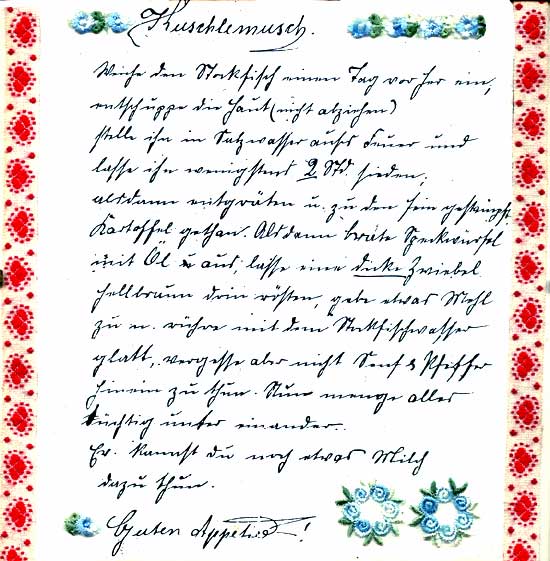 Kuschlemusch.
Weiche den Stockfisch einen Tag vorher ein,
entschuppe die Haut (nicht abziehen)
stelle ihn in Salzwasser aufs Feuer und
lasse ihn wenigstens 2 Std. sieden,
alsdann entgräten u. zu den fein gestampft.
Kartoffel gethan. Alsdann brate Speckwürfel
mit Öl aus, lasse eine dicke Zwiebel
hellbraun drin rösten, gebe etwas Mehl
zu u. rühre mit dem Stockfischwasser
glatt, vergesse aber nicht Senf & Pfeffer
hinein zu thun. Nun menge alles
tüchtig unter einander.
Ev. kannst du noch etwas Milch
dazu thun.
Guten Appetit!